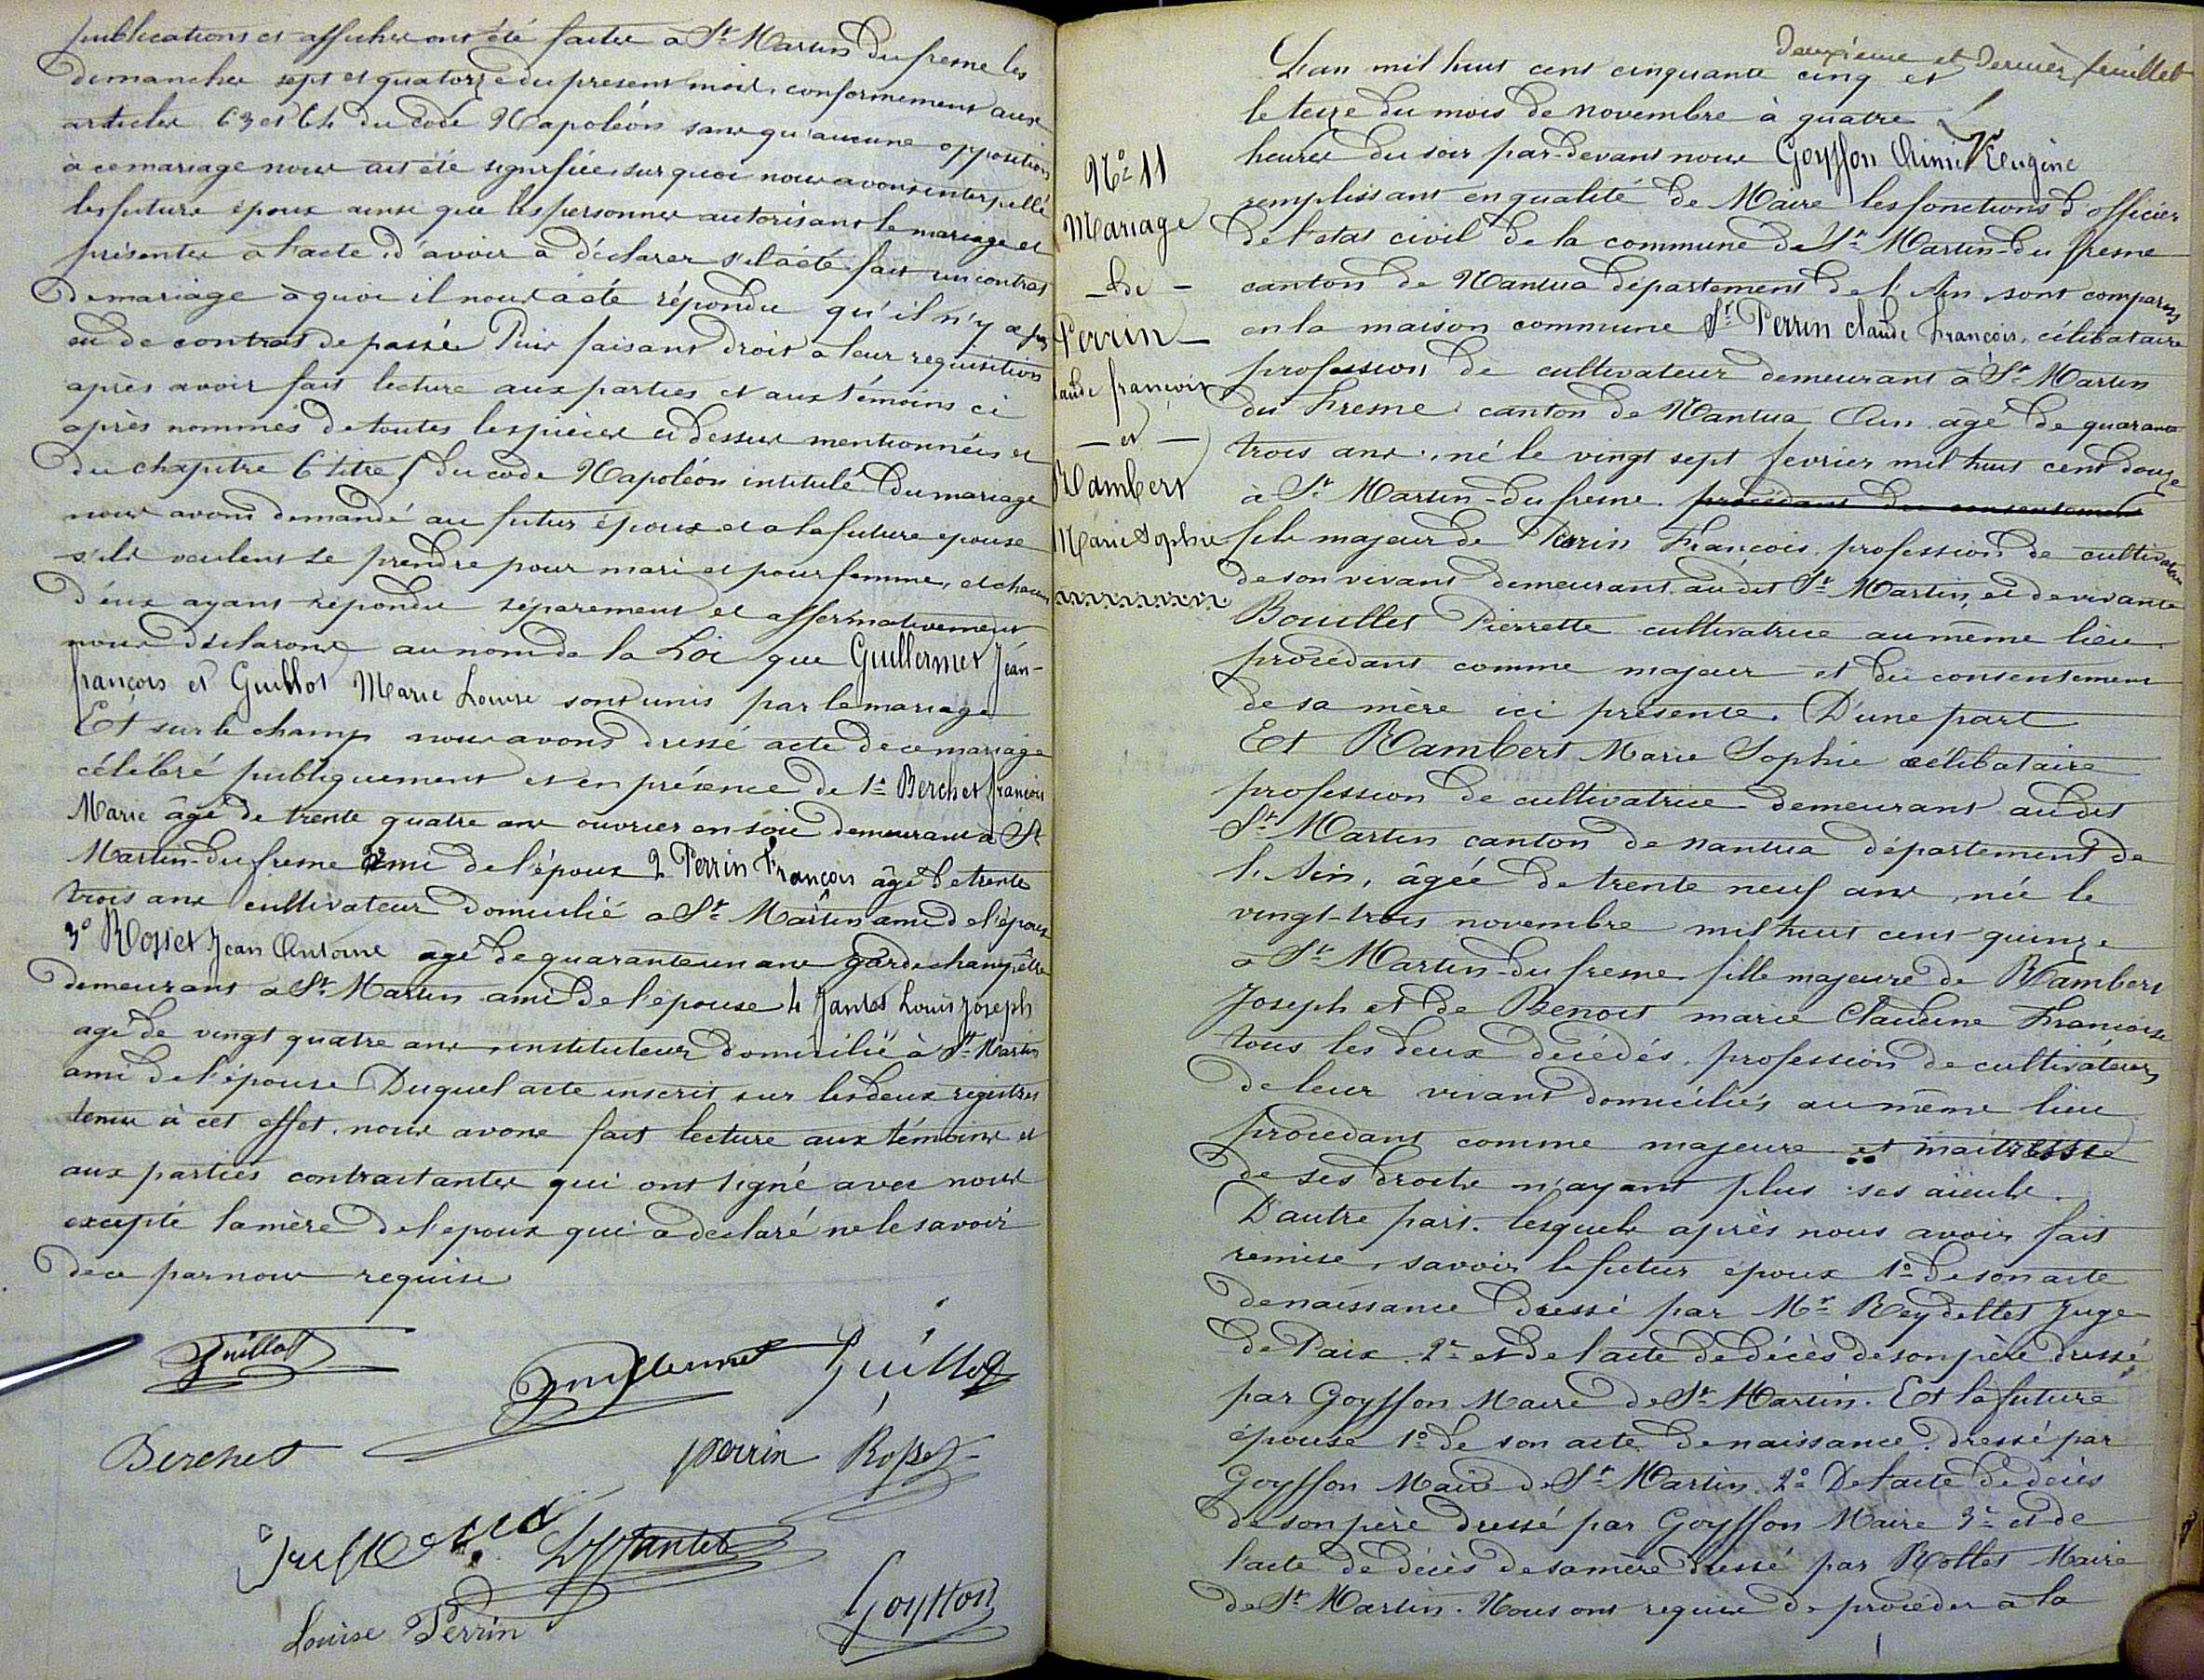 publications et affiches ont été faites à St Martin du fresne les
dimanches sept et quatorze du present mois, conformement aux
articles 63 et 64 du Code Napoléon sans qu'aucune opposition
à ce mariage nous ait été signifiée, sur quoi nous avons interpellé
les futurs époux ainsi que les personnes autorisant le mariage et
présentes à l'acte, d'avoir à déclarer s'il a été fait un contrat
de mariage à quoi il nous a été répondu qu'il n'y a pas
eu de contrat de passé Puis faisant droit a leur requisition
après avoir fait lecture aux parties et aux témoins ci
après nommés de toutes les pièces ci dessus mentionnées et
du chapitre 6 titre 5 du code Napoléon intitulé du mariage
nous avons demandé au futur époux et a la future épouse
s'ils veulent se prendre pour mari et pour femme, et chacun
d'eux ayant répondu séparement et affermativement
nous déclarons au nom de la Loi que Guillermet Jean-
françois et Guillot Marie Louise sont unis par le mariage
Et sur le champ nous avons dressé acte de ce mariage
célébré publiquement et en présence de 1° Berchet françois
Marie âgé de trente quatre ans ouvrier en soie demeurant à St
Martin-du fresne ami de l'époux 2 Perrin François âgé de trente
trois ans cultivateur domicilié a St Martin ami de l'époux
3° Rosset Jean Antoine agé de quarante un ans garde champêtre
demeurant a St Martin ami de l'épouse 4 Jantet Louis Joseph
agé de vingt quatre ans, instituteur domicilié à St Martin
ami de l'épouse Duquel acte inscrit sur les deux registres
tenus à cet effet, nous avons fait lecture aux témoins et
aux parties contractantes qui ont signé avec nous
excepté la mère de l'epoux qui a declaré ne le savoir
de ce par nous requise
Guillot Guillermet Guillot
Berchet perrin Rosset
Jantet
Louise Perrin Goyffon
Deuxième et dernier feuillet
L'an mil huit cent cinquante cinq et
le treize du mois de novembre à quatre
heures du soir par-devant nous Goyffon Aimé Eugène
remplissant en qualité de Maire les fonctions d'officier
de l'etat civil de la commune de St Martin-du fresne
canton de Nantua département de l'Ain sont comparus
en la maison commune Sr Perrin claude François, célibataire
profession de cultivateur demeurant à St Martin
du Fresne canton de Nantua Ain agé de quarante
trois ans, né le vingt sept fevrier mil huit cent douze
à St Martin-du fresne. procédant du consentement
fils majeur de Perrin François profession de cultivateur
de son vivant demeurant audit St Martin, et de vivante
Bouillet Pierrette cultivatrice au même lieu
procédant comme majeur et du consentement
de sa mère ici présente. D'une part
Et Rambert Marie Sophie célibataire
profession de cultivatrice demeurant audit
St Martin canton de nantua département de
l'Ain, âgée de trente neuf ans, née le
vingt-trois novembre mil huit cent quinze
a St Martin-du fresne fille majeure de Rambert
Joseph et de Benoit marie Claudine Françoise
tous les deux décédés, profession de cultivateurs
de leur vivant domiciliés au même lieu
procedant comme majeure et maitresse
de ses droits n'ayant plus ses aïeuls.
D'autre part. lesquels après nous avoir fait
remise, savoir le futur époux 1° de son acte
de naissance dressé par Mr Reydellet Juge
de Paix 2° et de l'acte de décès de son père dressé
par Goyffon Maire de St Martin. Et la future
épouse 1° de son acte de naissance dressé par
Goyffon Maire de St Martin 2° De l'acte de décès
de son père dressé par Goyffon Maire 3° et de
l'acte de décès de sa mère dressé par Rollet Maire
de St Martin. Nous ont requis de procéder à la
N° 11
Mariage
- de -
Perrin
laude françois
- et -
Rambert
Marie Sophie